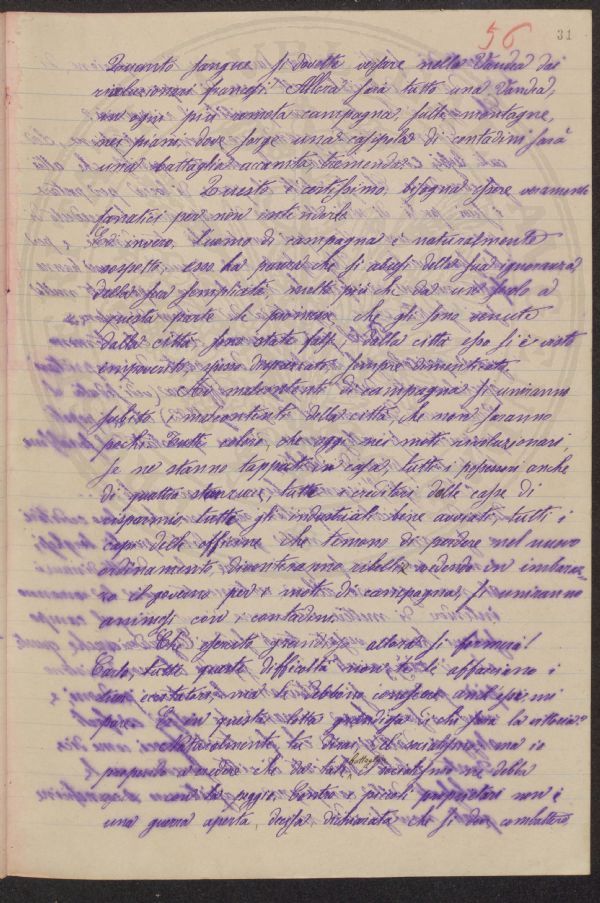 56
31
Quanto sangue si dovette versare nella Vandea dai
rivoluzionari francesi. Allora sarà tutto una Vandea,
in ogni più remota campagna, sulle montagne,
nei piani, dove sorge una casipola di contadini sarà
una battaglia accanita, tremenda.
Questo è certissimo, bisogna essere veramente
fanatici per non intenderlo.
Ed invero. L'uomo di campagna è naturalmente
sospetto, esso ha paura che si abusi della sua ignoranza
della sua semplicità, molto più che da un secolo a
questa parte le promesse che gli sono venute
dalla città sono state false, dalla città esso si è visto
impoverito, spesso disprezzato, sempre dimenticato.
Ai malcontenti di campagna si uniranno
subito i malcontenti della città, che non saranno
pochi. Tutti coloro, che oggi nei moti rivoluzionari
se ne stanno tappati in casa, tutti i possessori anche
di quattro stanzucce, tutti i creditori delle casse di
risparmio, tutti gli industriali bene avviati, tutti i
capi delle officine che temono di perdere nel nuovo
ordinamento, diventeranno ribelli, vedendo in imbaraz-
zo il governo per i moti di campagna, si uniranno
animosi con i contadini.
Che esercito grandioso allora si formerà!
Certo tutte queste difficoltà non te le affacciano i
tuoi eccitatori, ma le debbono conoscere anch'essi mi
pare. E in questa lotta grandiosa di chi sarà la vittoria?
Naturalmente tu dirai, del socialismo, ma io
proposto a credere che da tale battaglia il socialismo ne debba
uscire la peggio. Contro i piccoli proprietari non è
una guerra aperta, decisa, dichiarata che si deve combattere